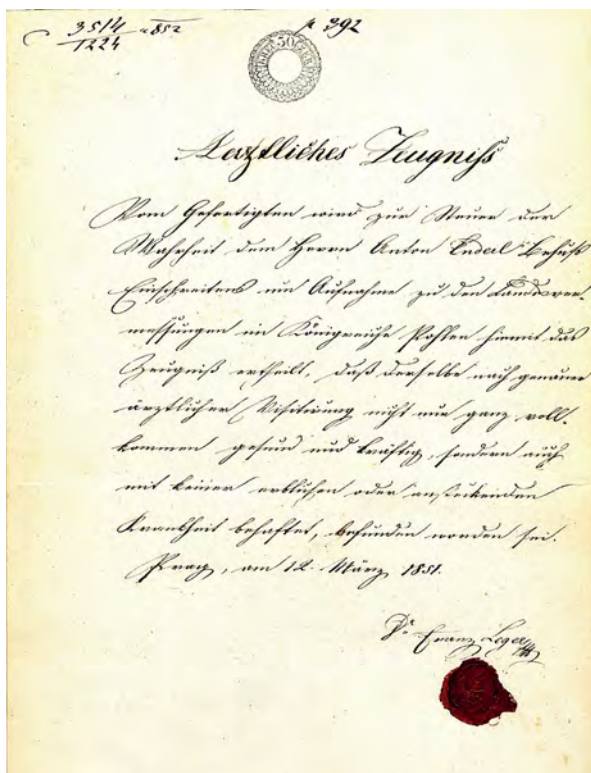 3514 852
1224
392
30
Aerztliches Zeugniß
Vom Gefertigten wird zur Steuer der
Wahrheit dem Herrn Anton Enderl Behufs
Einschreitens um Aufnahme zu den Landesver-
messungen im Königreiche Pohlen hiemit das
Zeugniß ertheilt, daß derselbe nach genauer
ärztlicher Visitirung nicht nur ganz voll-
kommen gesund und kräftig, sondern auch
mit keiner erblichen oder ansteckenden
Krankheit behaftet, befunden worden sei.
Prag, am 12. März 1851.
Dr Franz Leger